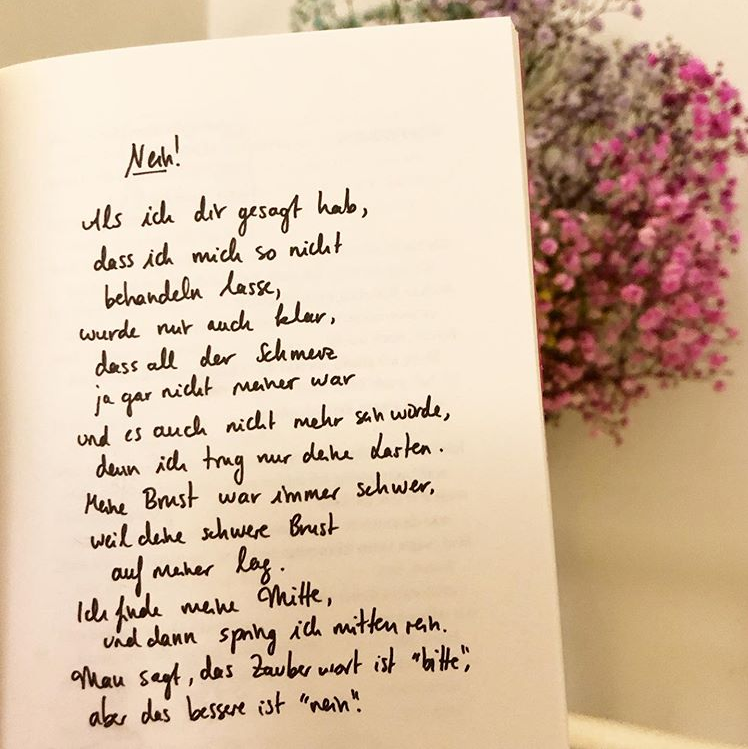 Nein!
Als ich dir gesagt hab,
dass ich mich so nicht
behandeln lasse,
wurde mir auch klar,
dass all der Schmerz
ja gar nicht meiner war
und es auch nicht mehr sein würde,
denn ich trug nur deine Lasten.
Meine Brust war immer schwer,
weil deine schwere Brust
auf meiner lag.
Ich finde meine Mitte,
und dann spring ich mitten rein.
Man sagt, das Zauberwort ist "bitte",
aber das bessere ist "nein".